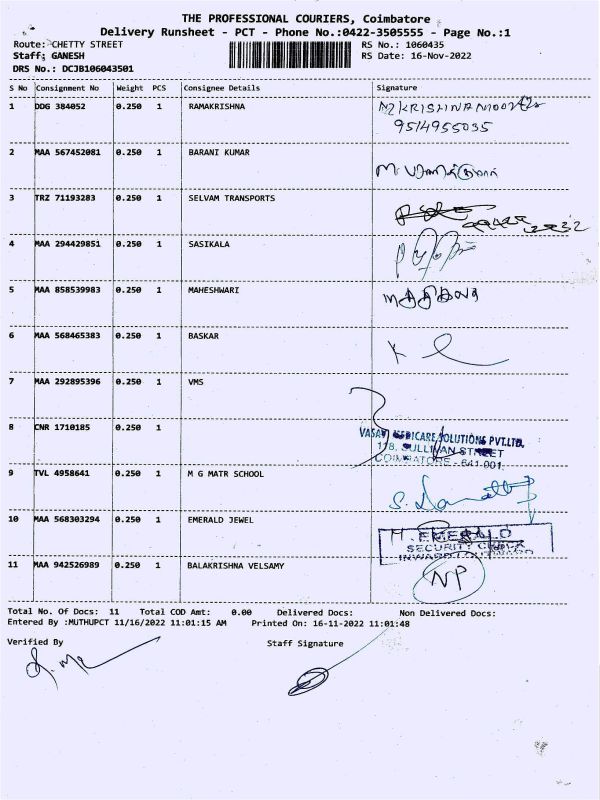 THE PROFESSIONAL COURIERS, Coimbatore
Delivery Runsheet - PCT - Phone No.:0422-3505555 - Page No.:1
Route: CHETTY STREET RS No.: 1060435
Staff: GANESH RS Date: 16-Nov-2022
DRS No.: DCJB106043501
S No Consignment No Weight PCS Consignee Details Signature
1 DDG 384052 0.250 1 RAMAKRISHNA
9514955035
2 MAA 567452081 0.250 1 BARANI KUMAR
3 TRZ 71193283 0.250 1 SELVAM TRANSPORTS
4 MAA 294429851 0.250 1 SASIKALA
5 MAA 858539983 0.250 1 MAHESHWARI
6 MAA 568465383 0.250 1 BASKAR
K
7 MAA 292895396 0.250 1 VMS
8 CNR 1710185 0.250 1
VASAN MEDICARE SOLUTIONS PVT.LTD.
118, SULLIVAN STREET
COIMBATORE - 641 001.
9 TVL 4958641 0.250 1 M G MATR SCHOOL
10 MAA 568303294 0.250 1 EMERALD JEWEL
EMERALD
SECURITY
INWARD
11 MAA 942526989 0.250 1 BALAKRISHNA VELSAMY NP
Total No. Of Docs: 11 Total COD Amt: 0.00 Delivered Docs: Non Delivered Docs:
Entered By :MUTHUPCT 11/16/2022 11:01:15 AM Printed On: 16-11-2022 11:01:48
Verified By Staff Signature